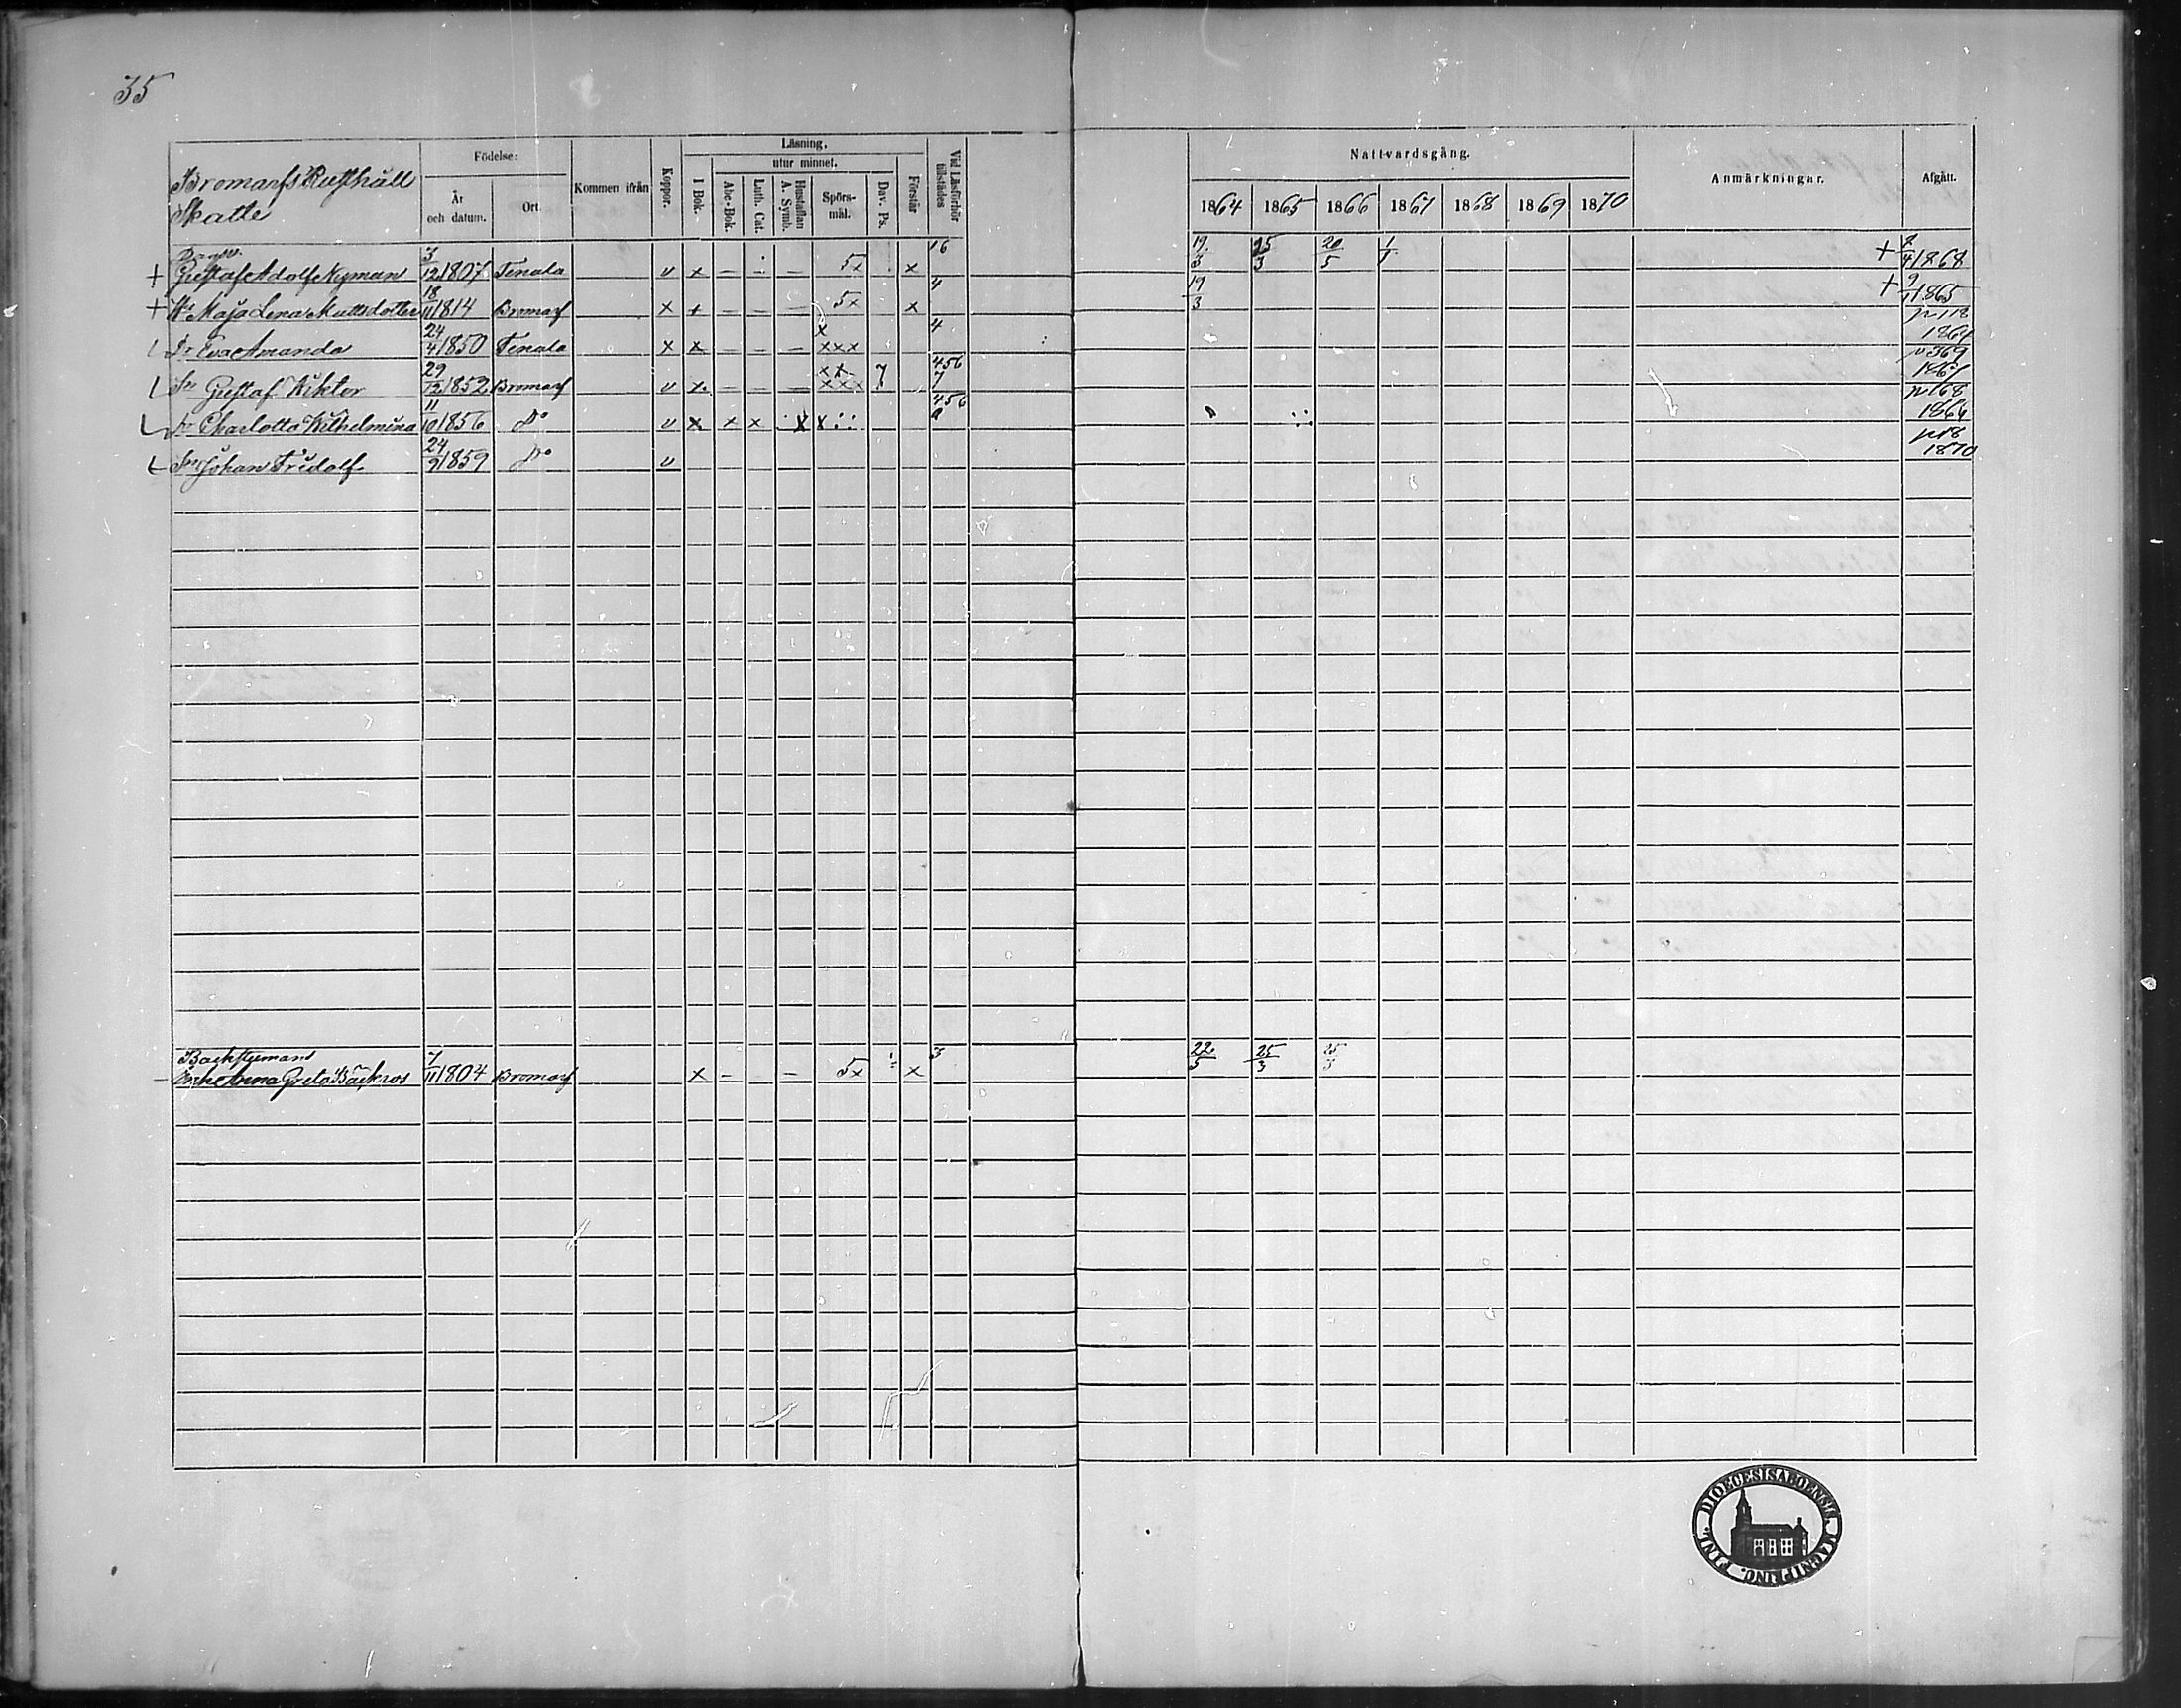 35
Bromarfs Rusthåll
Skatte
Födelse:
År och datum.
Ort.
Kommen ifrån
Koppor.
Läsning,
utur minnet.
I Bok.
Abc-Bok.
Luth. Cat.
Hustaflan A. Symb.
Spörs-mål.
Dav. Ps.
Förstår
Vid Läsförhör tillstädes
Nattvardsgång.
1864 1865 1866 1867 1868 1869 1870
Anmärkningar.
Afgått.
+ Gustaf Adolf Nyman 3/12 1807 Tenala v x – – 5x x 16 19/3 25/3 20/5 1/1 + 1868
+ Hu Maja Lena Mattsdotter 18/11 1814 Bromarf x + – – – 5x x 4 19/3 + 1865
Dr Eva Amanda 24/4 1850 Tenala x x – – – x xxx 4 p 118 1864
Sn Gustaf Wiktor 29/12 1852 Bromarf v x – – – xx xxx 7 456 7 p 369 1867
Dr Charlotta Wilhelmina 11/10 1856 do v x x x x x 456 p 168 1866
Sn Johan Fridolf 24/9 1859 do v p 18 1870
Backstugemans
Enka Anna Greta Bäckros 7/11 1804 Bromarf x – – 5x x 3 22/5 25/3 25/3
FINL. DIOECESIS ABOENSIS. MAGNI PRINC.